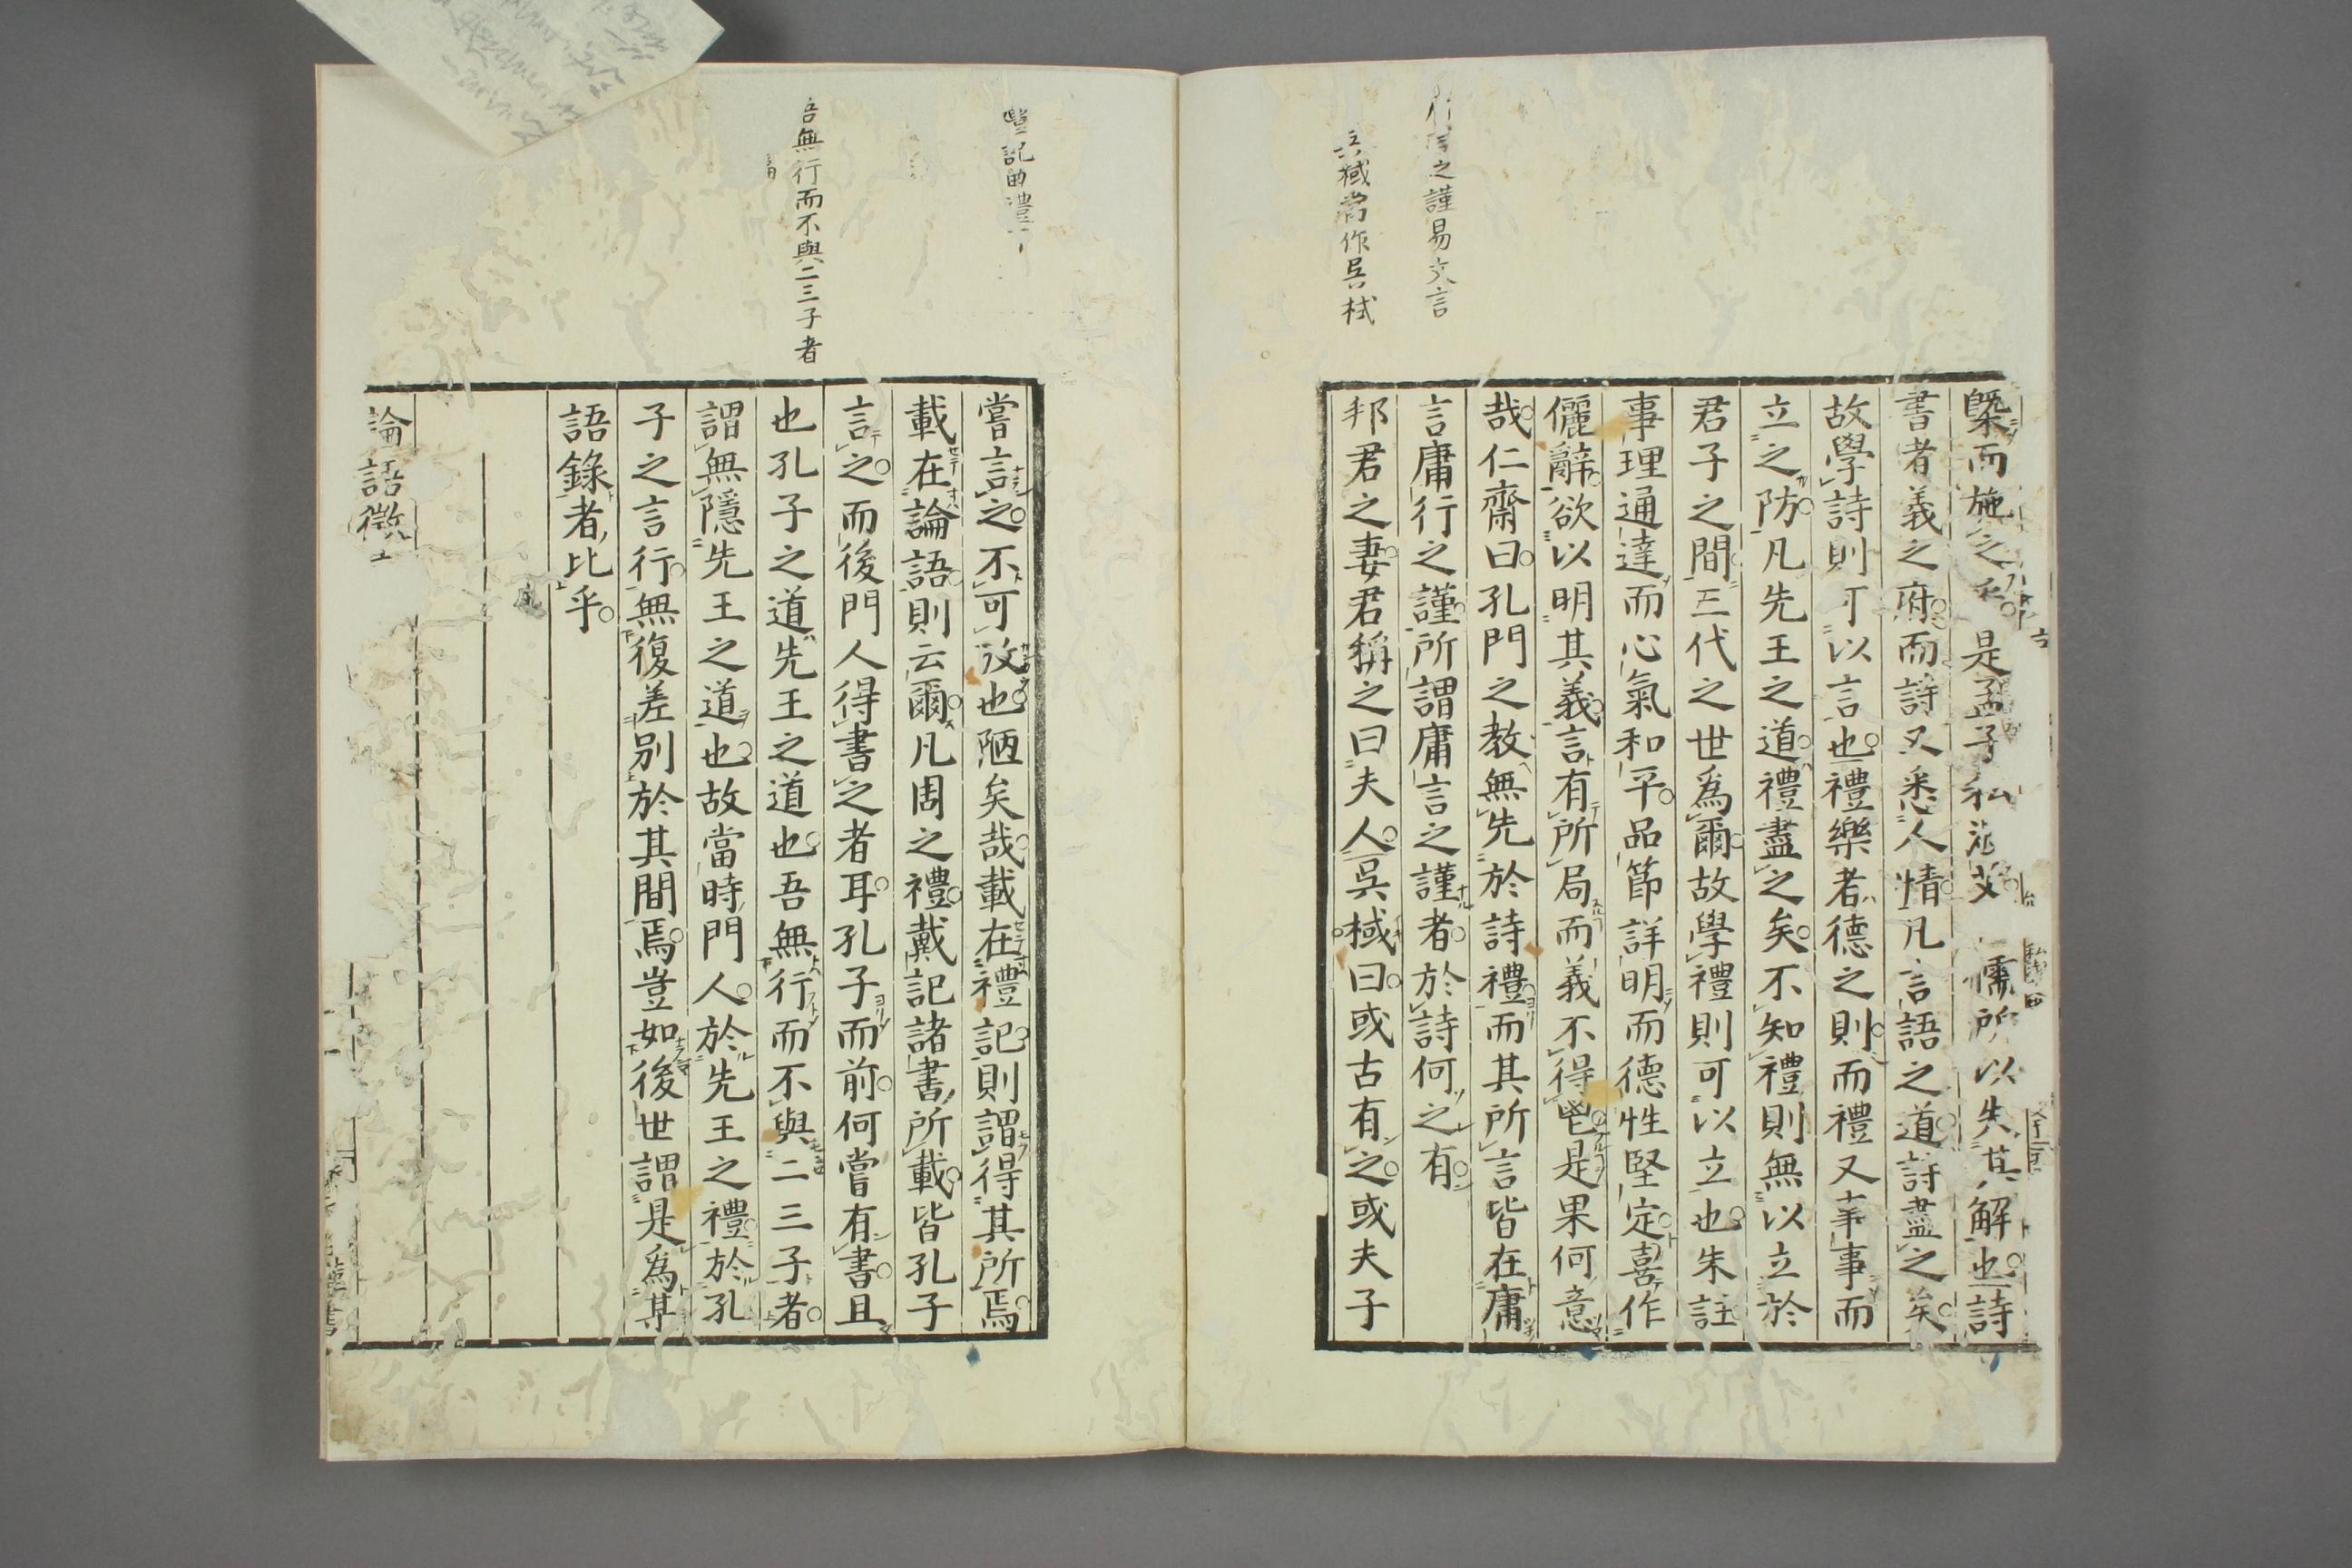 之謹易文言
棫當作吳棫
槩而施之
是孟子私
儒所以失其解也詩
書者義之府而詩又悉人情凡言語之道詩盡之矣
故學詩則可以言也禮樂者德之則而禮又事事而
立之防凡先王之道禮盡之矣不知禮則無以立於
君子之間三代之世爲爾故學禮則可以立也朱註
事理通達而心氣和平品節詳明而德性堅定喜作
儷辭欲以明其義言有所局而義不得鬯是果何意
哉仁齋曰孔門之教無先於詩禮而其所言皆在庸
言庸行之謹所謂庸言之謹者於詩何之有
邦君之妻君稱之曰夫人吳棫曰或古有之或夫子
禮記曲禮下
吾無行而不與二三子者
嘗言之不可攷也陋矣哉載在禮記則謂得其所焉
載在論語則云爾凡周之禮戴記諸書所載皆孔子
言之而後門人得書之者耳孔子而前何嘗有書且
也孔子之道先王之道也吾無行而不與二三子者
謂無隱先王之道也故當時門人於先王之禮於孔
子之言行無復差別於其間焉豈如後世謂是爲某
語錄者比乎
論語徵